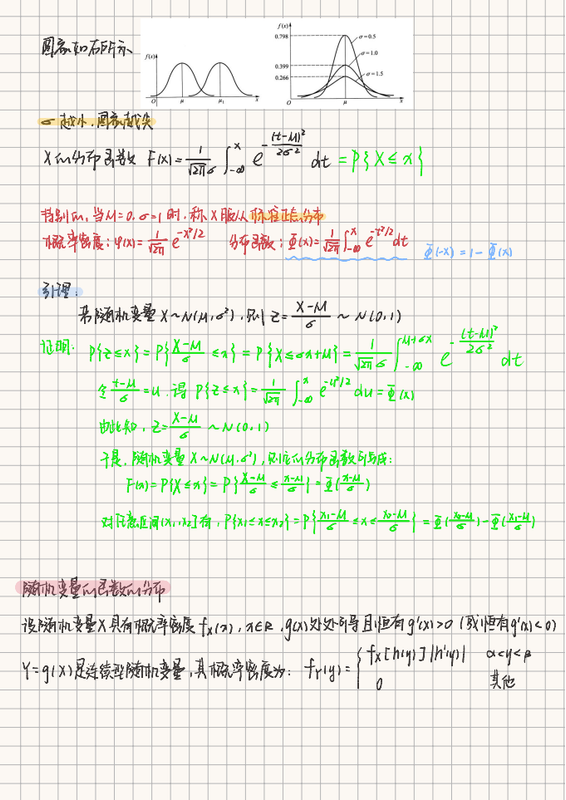 图象如右所示
f(x)
O μ μ₁ x
f(x)
0.798
0.399
0.266
σ=0.5
σ=1.0
σ=1.5
O μ x
σ越小,图象越尖
X的分布函数 F(x)=\frac{1}{\sqrt{2π}σ}∫_{-∞}^{x} e^{-\frac{(t-μ)²}{2σ²}} dt = P{X≤x}
特别的,当μ=0,σ=1时,称X服从标准正态分布
概率密度:φ(x)=\frac{1}{\sqrt{2π}} e^{-x²/2} 分布函数:Φ(x)=\frac{1}{\sqrt{2π}}∫_{-∞}^{x} e^{-t²/2}dt Φ(-x)=1-Φ(x)
引理:
若随机变量X~N(μ,σ²),则Z=\frac{X-μ}{σ} ~ N(0,1)
证明: P{Z≤x}=P{\frac{X-μ}{σ}≤x}=P{X≤σx+μ}=\frac{1}{\sqrt{2π}σ}∫_{-∞}^{μ+σx} e^{-\frac{(t-μ)²}{2σ²}} dt
令\frac{t-μ}{σ}=u,得 P{Z≤x}=\frac{1}{\sqrt{2π}}∫_{-∞}^{x} e^{-u²/2}du=Φ(x)
由此知,Z=\frac{X-μ}{σ} ~N(0,1)
于是,随机变量X~N(μ,σ²),则它的分布函数可写成:
F(x)=P{X≤x}=P{\frac{X-μ}{σ}≤\frac{x-μ}{σ}}=Φ(\frac{x-μ}{σ})
对任意区间(x₁,x₂]有,P{x₁<x≤x₂}=P{\frac{x₁-μ}{σ}≤x≤\frac{x₂-μ}{σ}}=Φ(\frac{x₂-μ}{σ})-Φ(\frac{x₁-μ}{σ})
随机变量的函数的分布
设随机变量X具有概率密度f_X(x),x∈R,g(x)处处可导且恒有g'(x)>0(或恒有g'(x)<0)
Y=g(X)是连续型随机变量,其概率密度为: f_Y(y)={ f_X[h(y)]|h'(y)| α<y<β
0 其他